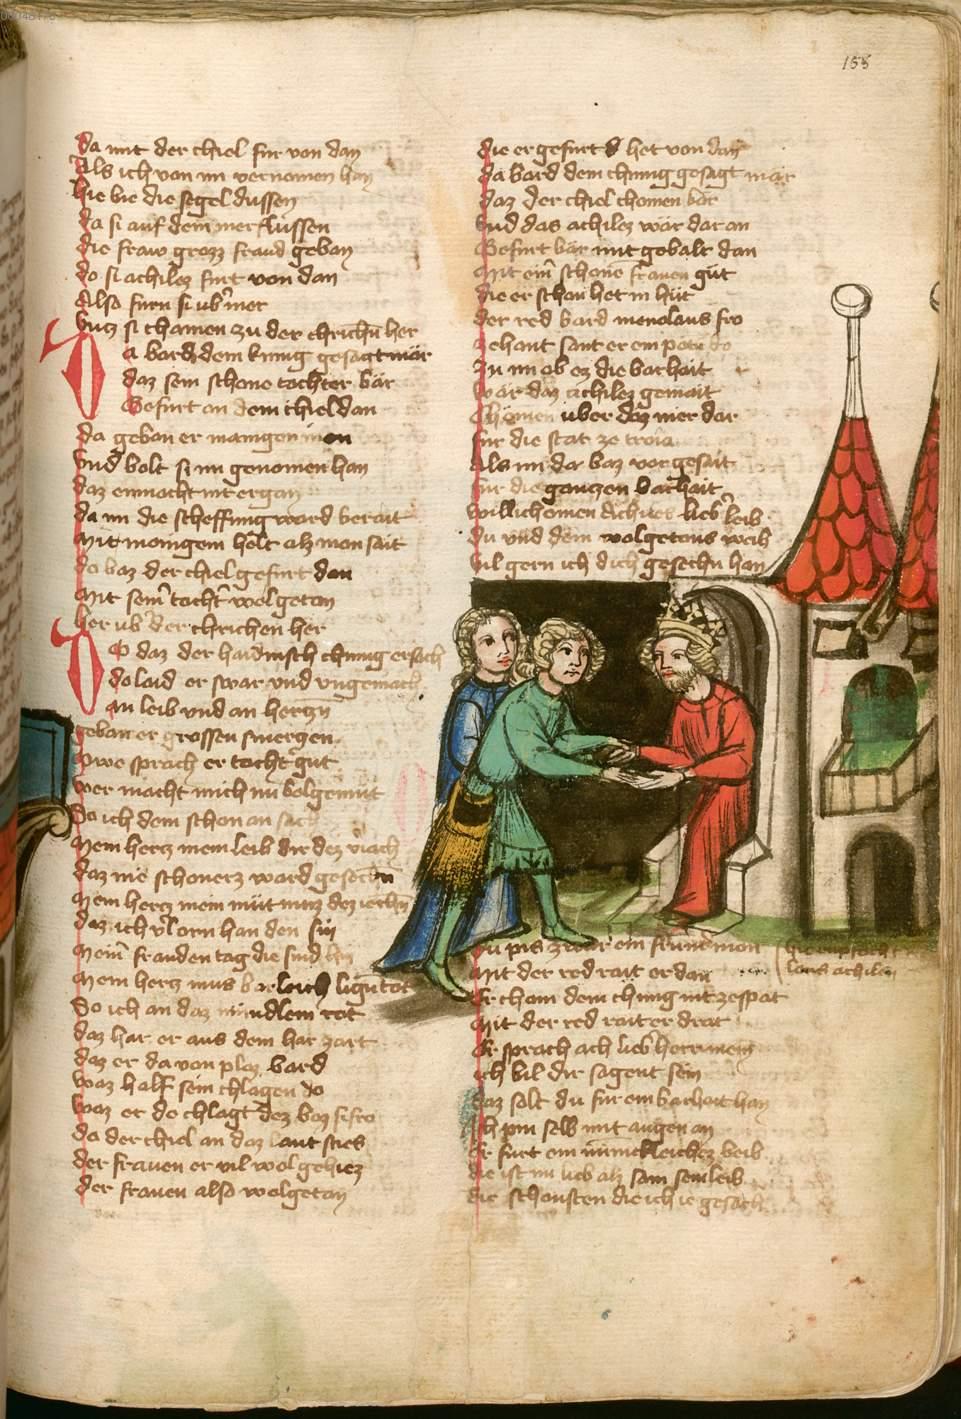 155
da mit der chiel fur von dan
Als ich von im vernomen han
hie bie die segel dussen
da si auf dem mer flussen
die fraw grozz fraud geban
do si achilez furt von dan
Also furn si ub'mer
bucz si chamen zu der chrichn her
Da bard dem kunig gesagt mär
daz sein schone tochter bär
Gefurt an dem chiel dan
da geban er manigen man
vnd bolt si im genomen han
daz enmacht nit ergan
da im die scheffung ward berait
Mit manigem helt alz man sait
do baz der chiel gefurt dan
Mit sein' tocht' wolgetan
her ub' der chrichen her
Do daz der haidnisch chunig ersach
do laid er swar vnd vngemach
an leib vnd an herczn
geban er grossen smerczen
Owe sprach er tocht' gut
wer macht mich nu bolgemut
Do ich dem schon an sach
Mein hercz mein leib dir dez viach
daz nie schonerz ward gesechn
Mein hercz mein müt muz dez iechn
daz ich v'lorn han den sin
Mein' frauden tag die sind hin
Mein hercz mus lign tot
Do ich an daz mündlein rot
daz har er aus dem har zart
daz er da von ploz bard
waz half sein chlagen do
waz er do chlagt dez baz
da der chiel an daz lant sties
der frauen er vil wol gehiez
der frauen also wolgetan
die er gefurt het von dan
da bard dem chunig gesagt mär
daz der chiel chomen bär
vnd das achilez wär dar an
Gefurt bär mit gebalt dan
Mit ein' schone frauen güt
die er schon het in hüt
der red bard menolaus fro
zehant sant er em poten do
Zu im ob ez die barhait
wär daz achilez gemait
Chömen uber daz mer dar
für die stat ze troia
Als im dar baz vor gesait
für die ganczen bachait
willichomen dich lieb' leib
du vnd dein wolgetans weib
vil gern ich dich gesechn han
du pis ein frum man
Mit der red rait er dan
Er cham dem chung nit zespat
Mit der red rait er drat
Er sprach ach lieb herr mein
ich bil dir sagent sein
daz solt du fur ein barhait han
Ich pin selb mit augen an
Er furt ein minickleichez beib
die ist im lieb alz sam sein leib
die schonsten die ich ie gesach
hie enpfacht
laus achilen